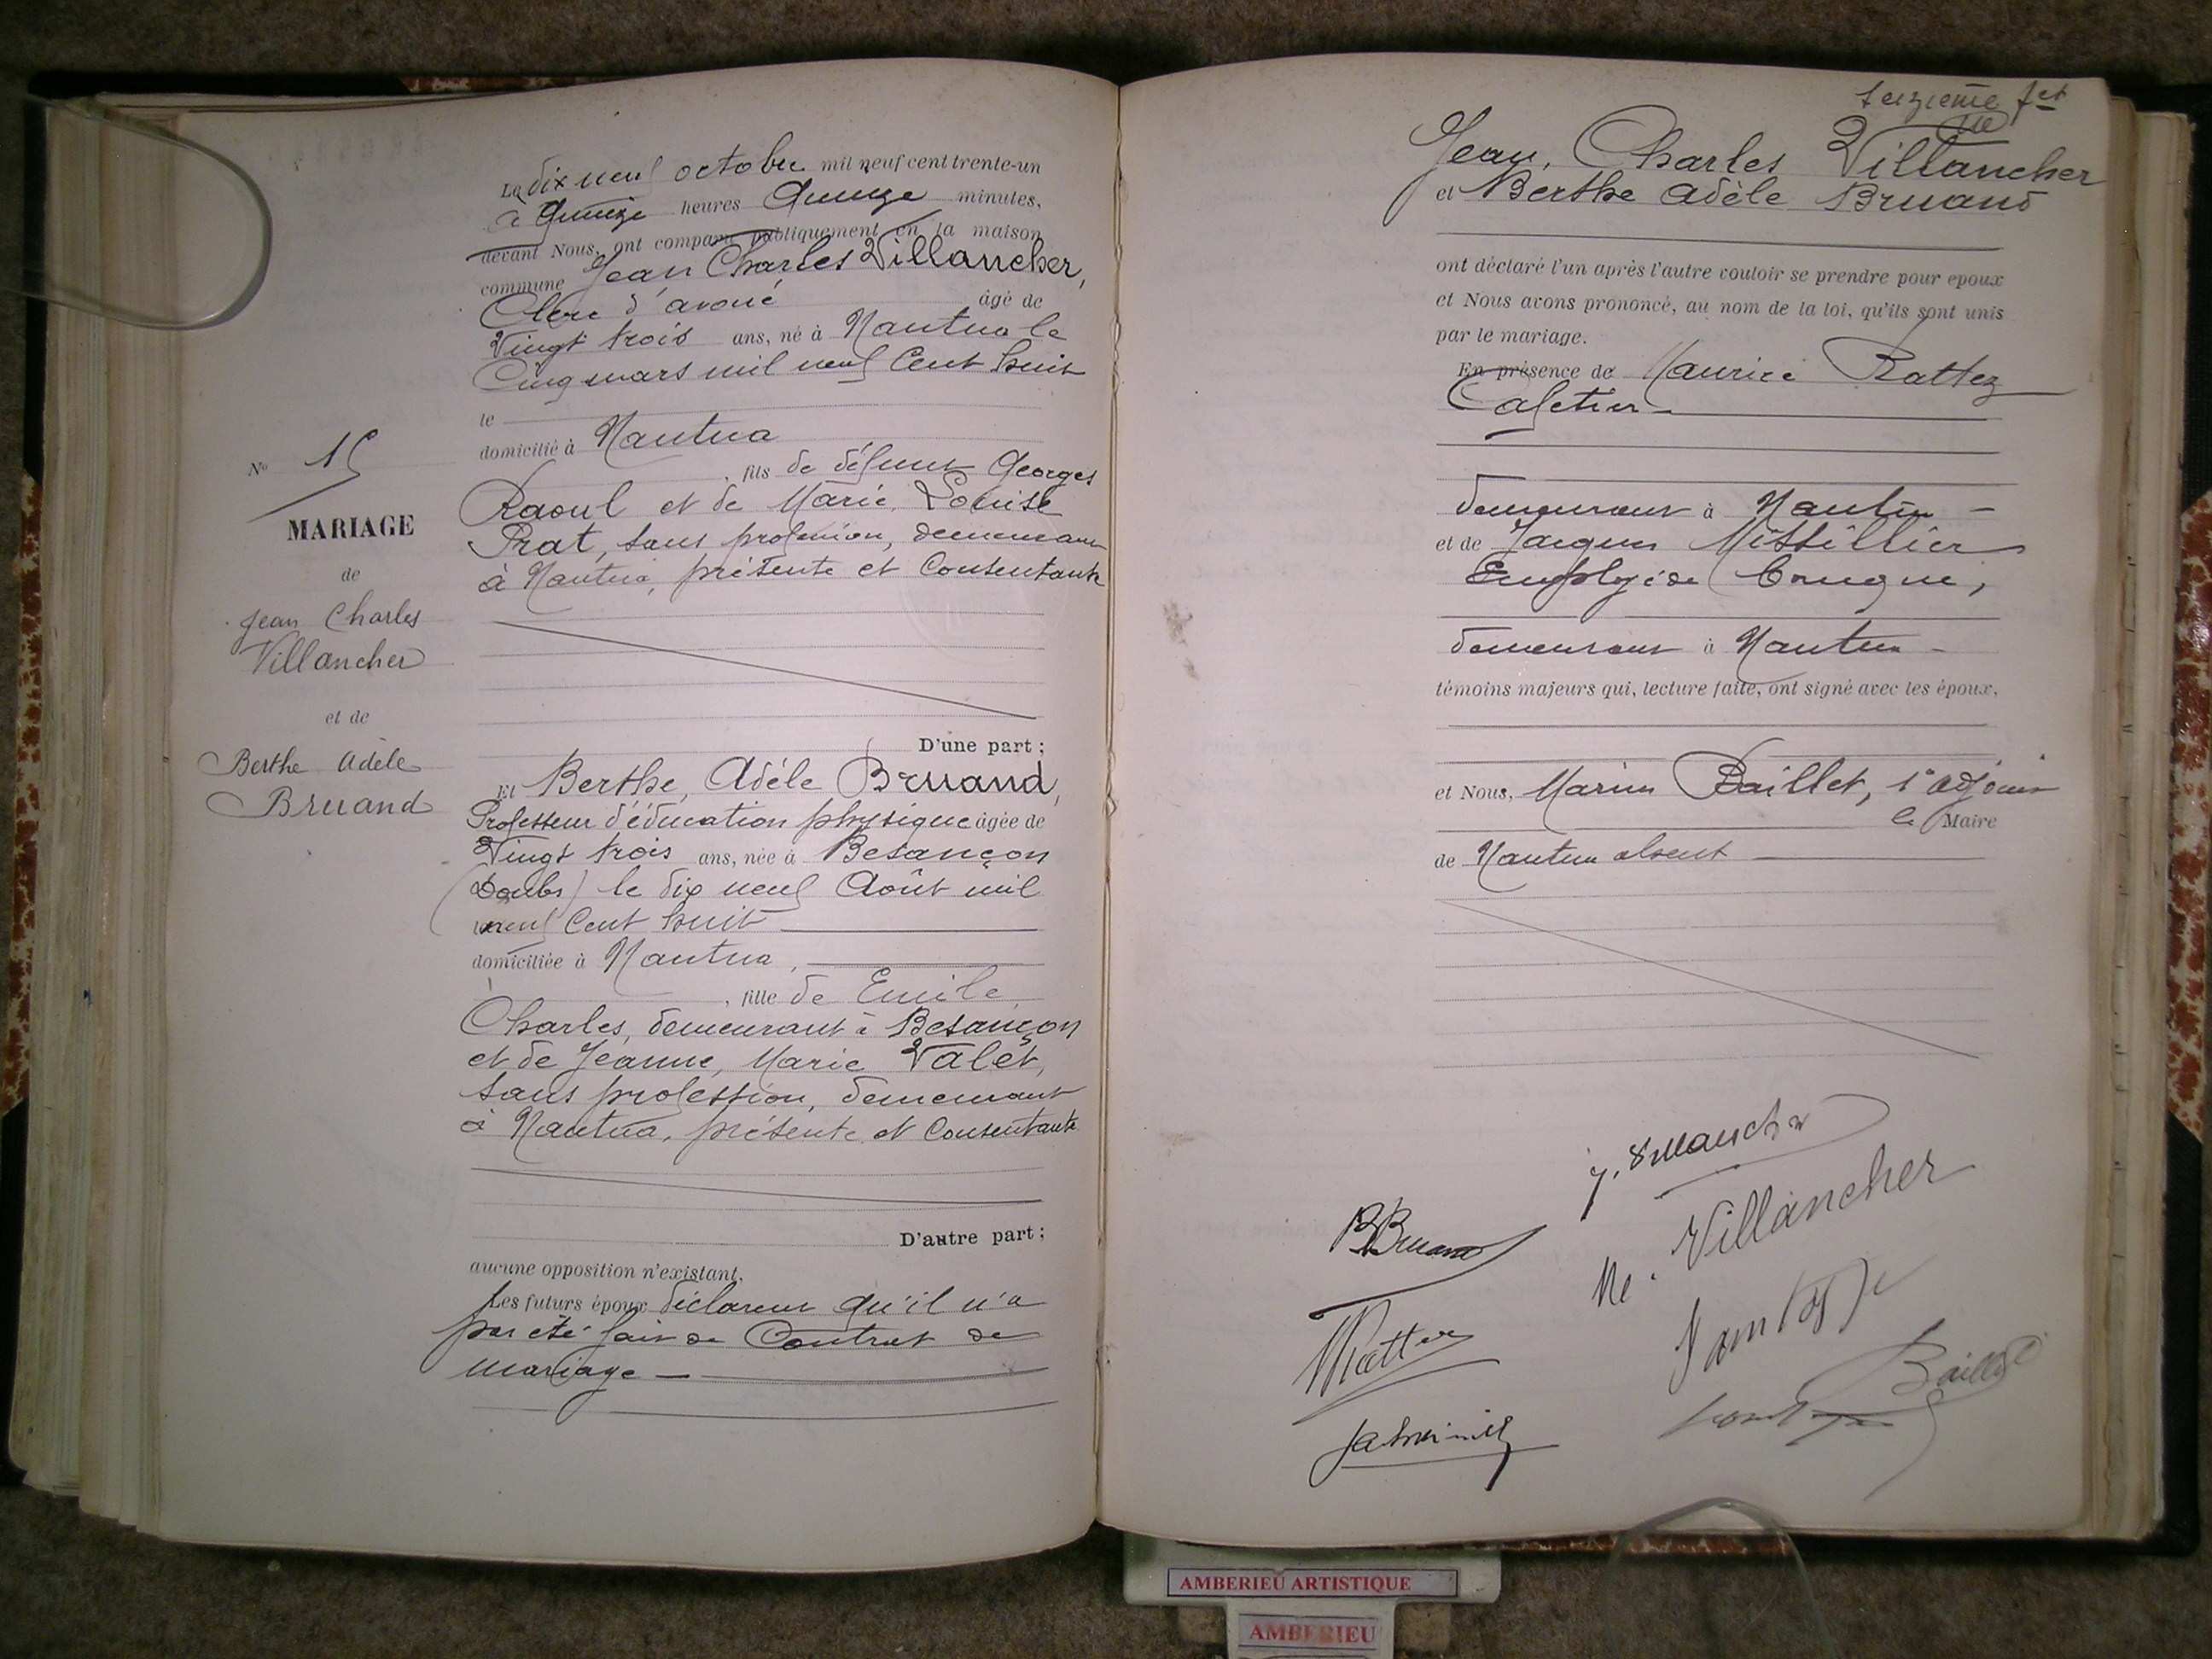 Le dix neuf octobre mil neuf cent trente-un
à Quinze heures Quinze minutes,
devant Nous, ont comparu publiquement en la maison
commune Jean Charles Villancher,
Clerc d'avoué âgé de
Vingt trois ans, né à Nantua le
Cinq mars mil neuf Cent huit
le
domicilié à Nantua
, fils de défunt Georges
Raoul et de Marie, Louise
Prat, sans profession, demeurant
à Nantua, présente et Consentante
No 15
MARIAGE
de
Jean Charles
Villancher
et de
Berthe Adèle
Bruand
D'une part ;
Et Berthe, Adéle Bruand,
Professeur d'éducation physique âgée de
Vingt trois ans, née à Besançon
(Doubs) le dix neuf Août mil
neuf Cent huit
domiciliée à Nantua,
, fille de Emile,
Charles, demeurant à Besançon
et de Jeanne, Marie Valet,
sans profession, demeurant
à Nantua, présente et Consentante
D'autre part ;
aucune opposition n'existant.
Les futurs époux déclarent qu'il n'a
pas été fait de Contrat de
mariage
seizième fet
Jean, Charles Villancher
et Berthe Adèle Bruand
ont déclaré l'un après l'autre vouloir se prendre pour epoux
et Nous avons prononcé, au nom de la loi, qu'ils sont unis
par le mariage.
En présence de Maurice Rattez
Cafetier
demeurant à Nantua
et de Jacques Missillier
Employé de banque,
demeurant à Nantua
témoins majeurs qui, lecture faite, ont signé avec les époux,
et Nous, Marius Baillet, 1er adjoint
le Maire
de Nantua absent
J. Villancher
BBruand
M. Villancher
Rattez
Baillet
AMBERIEU ARTISTIQUE
AMBERIEU